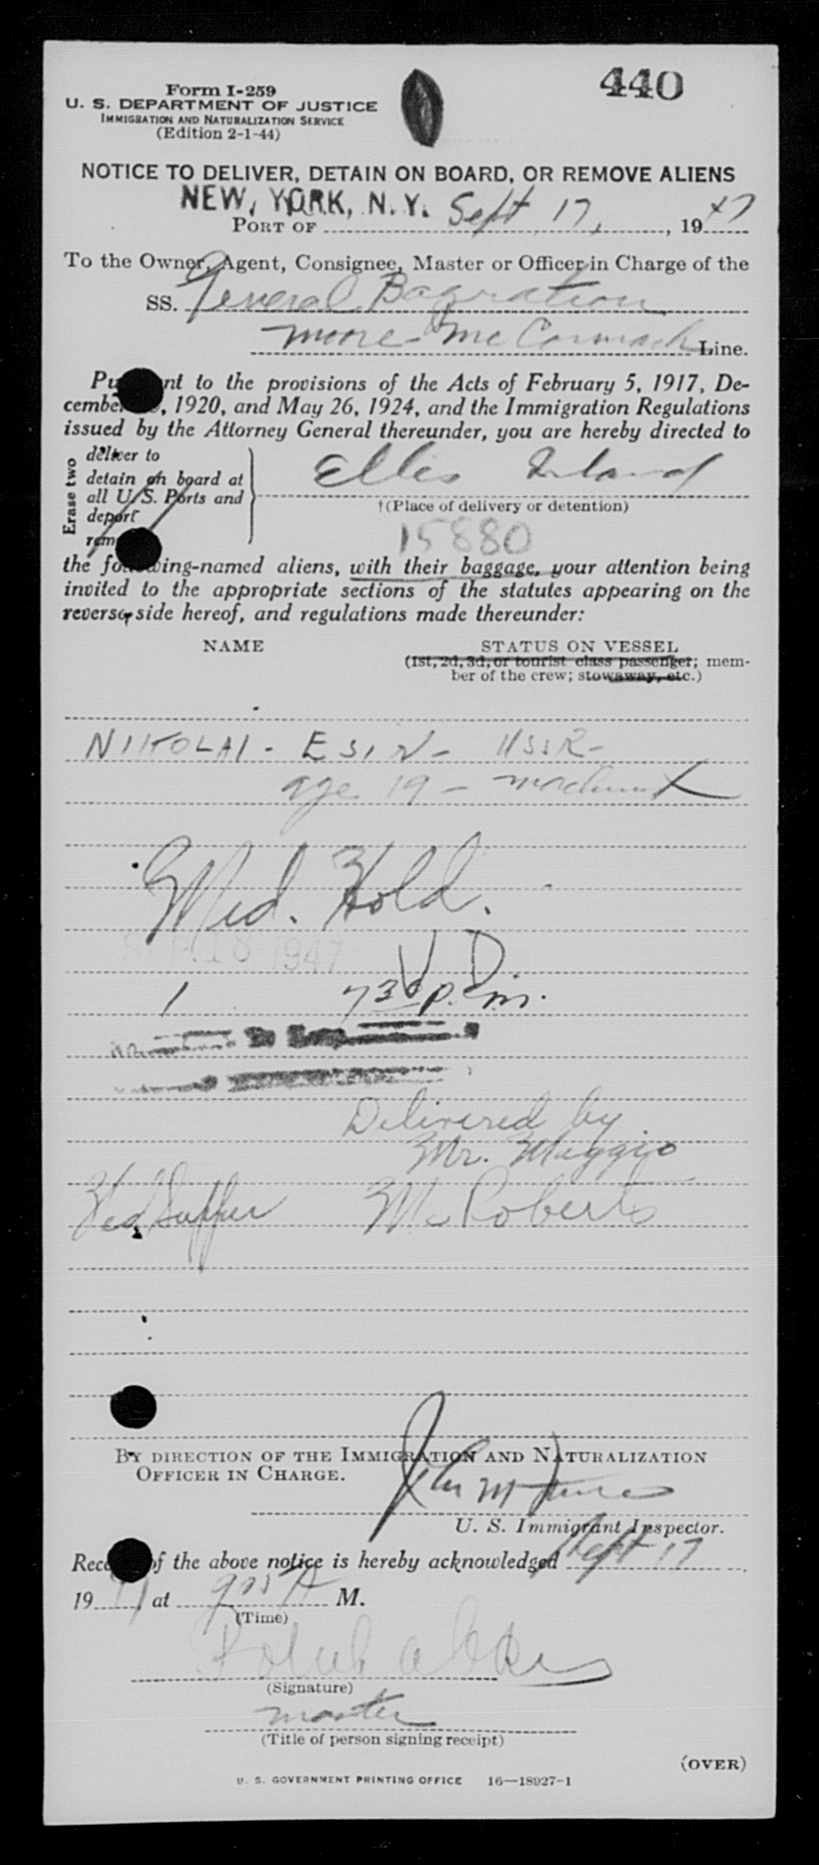 440
Form I-259
U. S. DEPARTMENT OF JUSTICE
IMMIGRATION AND NATURALIZATION SERVICE
(Edition 2-1-44)
NOTICE TO DELIVER, DETAIN ON BOARD, OR REMOVE ALIENS
NEW YORK, N. Y. Sept 17, 47
PORT OF , 19
To the Owner, Agent, Consignee, Master or Officer in Charge of the
SS. General Bagration
Moore McCormack Line.
Pu nt to the provisions of the Acts of February 5, 1917, De-
cembe , 1920, and May 26, 1924, and the Immigration Regulations
issued by the Attorney General thereunder, you are hereby directed to
Erase two
deliver to
detain on board at
all U. S. Ports and
deport
rem
Ellis Island
†(Place of delivery or detention)
15880
the fo wing-named aliens, with their baggage, your attention being
invited to the appropriate sections of the statutes appearing on the
reverse side hereof, and regulations made thereunder:
NAME STATUS ON VESSEL
(1st, 2d, 3d, or tourist class passenger; mem-
ber of the crew; stowaway, etc.)
NIKOLAI - ESIN - USSR -
age 19 -
Med. Hold.
18 1947 VD
1 730 p.m.
Delivered by
Mr. Maggio
McRoberts
BY DIRECTION OF THE IMMIGRATION AND NATURALIZATION
OFFICER IN CHARGE.
U. S. Immigrant Inspector.
Rece of the above notice is hereby acknowledged Sept 17
19 at M.
(Time)
(Signature)
master
(Title of person signing receipt)
(OVER)
U. S. GOVERNMENT PRINTING OFFICE 16—18927-1